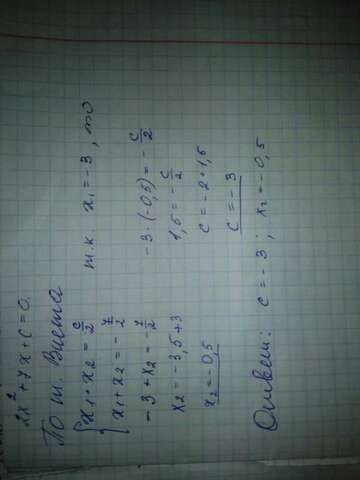 2x² + 7x + c = 0.
По т. Виета
{ x₁ · x₂ = c/2
{ x₁ + x₂ = -7/2
т.к x₁ = -3, то
-3 + x₂ = -7/2
x₂ = -3,5 + 3
x₂ = -0,5
-3 · (-0,5) = -c/2
1,5 = -c/2
c = -2 · 1,5
c = -3
Ответ: c = -3; x₂ = -0,5